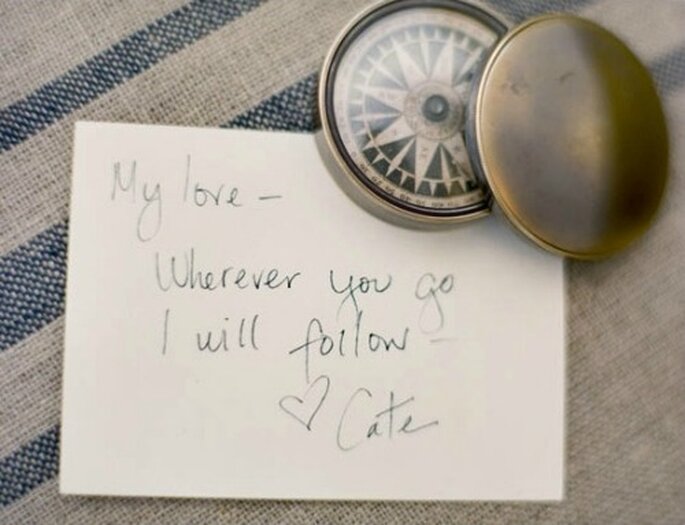 My love –
Wherever you go
I will follow –
♡ Cate